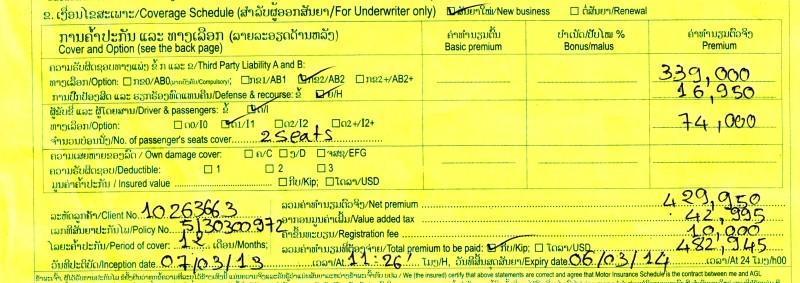 2. ເງື່ອນໄຂສະເພາະ/Coverage Schedule (ສຳລັບຜູ້ອອກສັນຍາ/For Underwriter only) ☑ ສັນຍາໃໝ່/New business ☐ ຕໍ່ສັນຍາ/Renewal
ການຄ້ຳປະກັນ ແລະ ທາງເລືອກ (ລາຍລະອຽດດ້ານຫລັງ) ຄ່າທຳນຽມຕົ້ນ ບຳເນັດ/ປັບໃໝ % ຄ່າທຳນຽມຕົວຈິງ
Cover and Option (see the back page) Basic premium Bonus/malus Premium
ຄວາມຮັບຜິດຊອບທາງແພ່ງ ຂໍ້ ກ ແລະ ຂ/Third Party Liability A and B:
ທາງເລືອກ/Option: ☐ ກຂ0/AB0 /Compulsory; ☐ ກຂ1/AB1 ☑ ກຂ2/AB2 ☐ ກຂ2+/AB2+ 339,000
ການປົກປ້ອງສິດ ແລະ ຮຽກຮ້ອງທົດແທນຄືນ/Defense & recourse: ຂໍ້ ☑ ຍ/H 16,950
ຜູ້ຂັບຂີ່ ແລະ ຜູ້ໂດຍສານ/Driver & passengers: ຂໍ້ ☑ ດ/I
ທາງເລືອກ/Option: ☐ ດ0/I0 ☑ ດ1/I1 ☐ ດ2/I2 ☐ ດ2+/I2+ 74,000
ຈຳນວນບ່ອນນັ່ງ/No. of passenger's seats cover 2 Seats
ຄວາມເສຍຫາຍຂອງລົດ / Own damage cover: ☐ ຄ/C ☐ ງ/D ☐ ຈສຊ/EFG
ຄວາມຮັບຜິດຊອບ/Deductible: ☐ 1 ☐ 2 ☐ 3
ມູນຄ່າຄ້ຳປະກັນ / Insured value ☐ ກີບ/Kip; ☐ ໂດລາ/USD
ລວມຄ່າທຳນຽມຕົວຈິງ/Net premium 429,950
ລະຫັດລູກຄ້າ/Client No. 10263663 ອາກອນມູນຄ່າເພີ່ມ/Value added tax 42,995
ເລກທີສັນຍາປະກັນໄພ/Policy No 5130300.972 ຄ່າຂຶ້ນທະບຽນ/Registration fee 10,000
ໄລຍະຄ້ຳປະກັນ/Period of cover: 12 ເດືອນ/Months; ລວມຄ່າທຳນຽມທີ່ຕ້ອງຈ່າຍ/Total premium to be paid: ☑ ກີບ/Kip; ☐ ໂດລາ/USD 482,945
ວັນທີປະຕິບັດ/Inception date 07/03/13 ເວລາ/At 11:26' ໂມງ/H, ວັນທີສິ້ນສຸດສັນຍາ/Expiry date 06/03/14 ເວລາ/At 24 ໂມງ/h00
/ We (the insured) certify that above statements are correct and agree that Motor Insurance Schedule is the contract between me and AGL